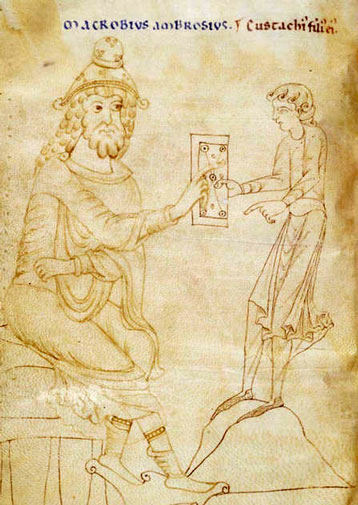 MACROBIUS AMBROSIUS. Eustachi' fili' ei'.